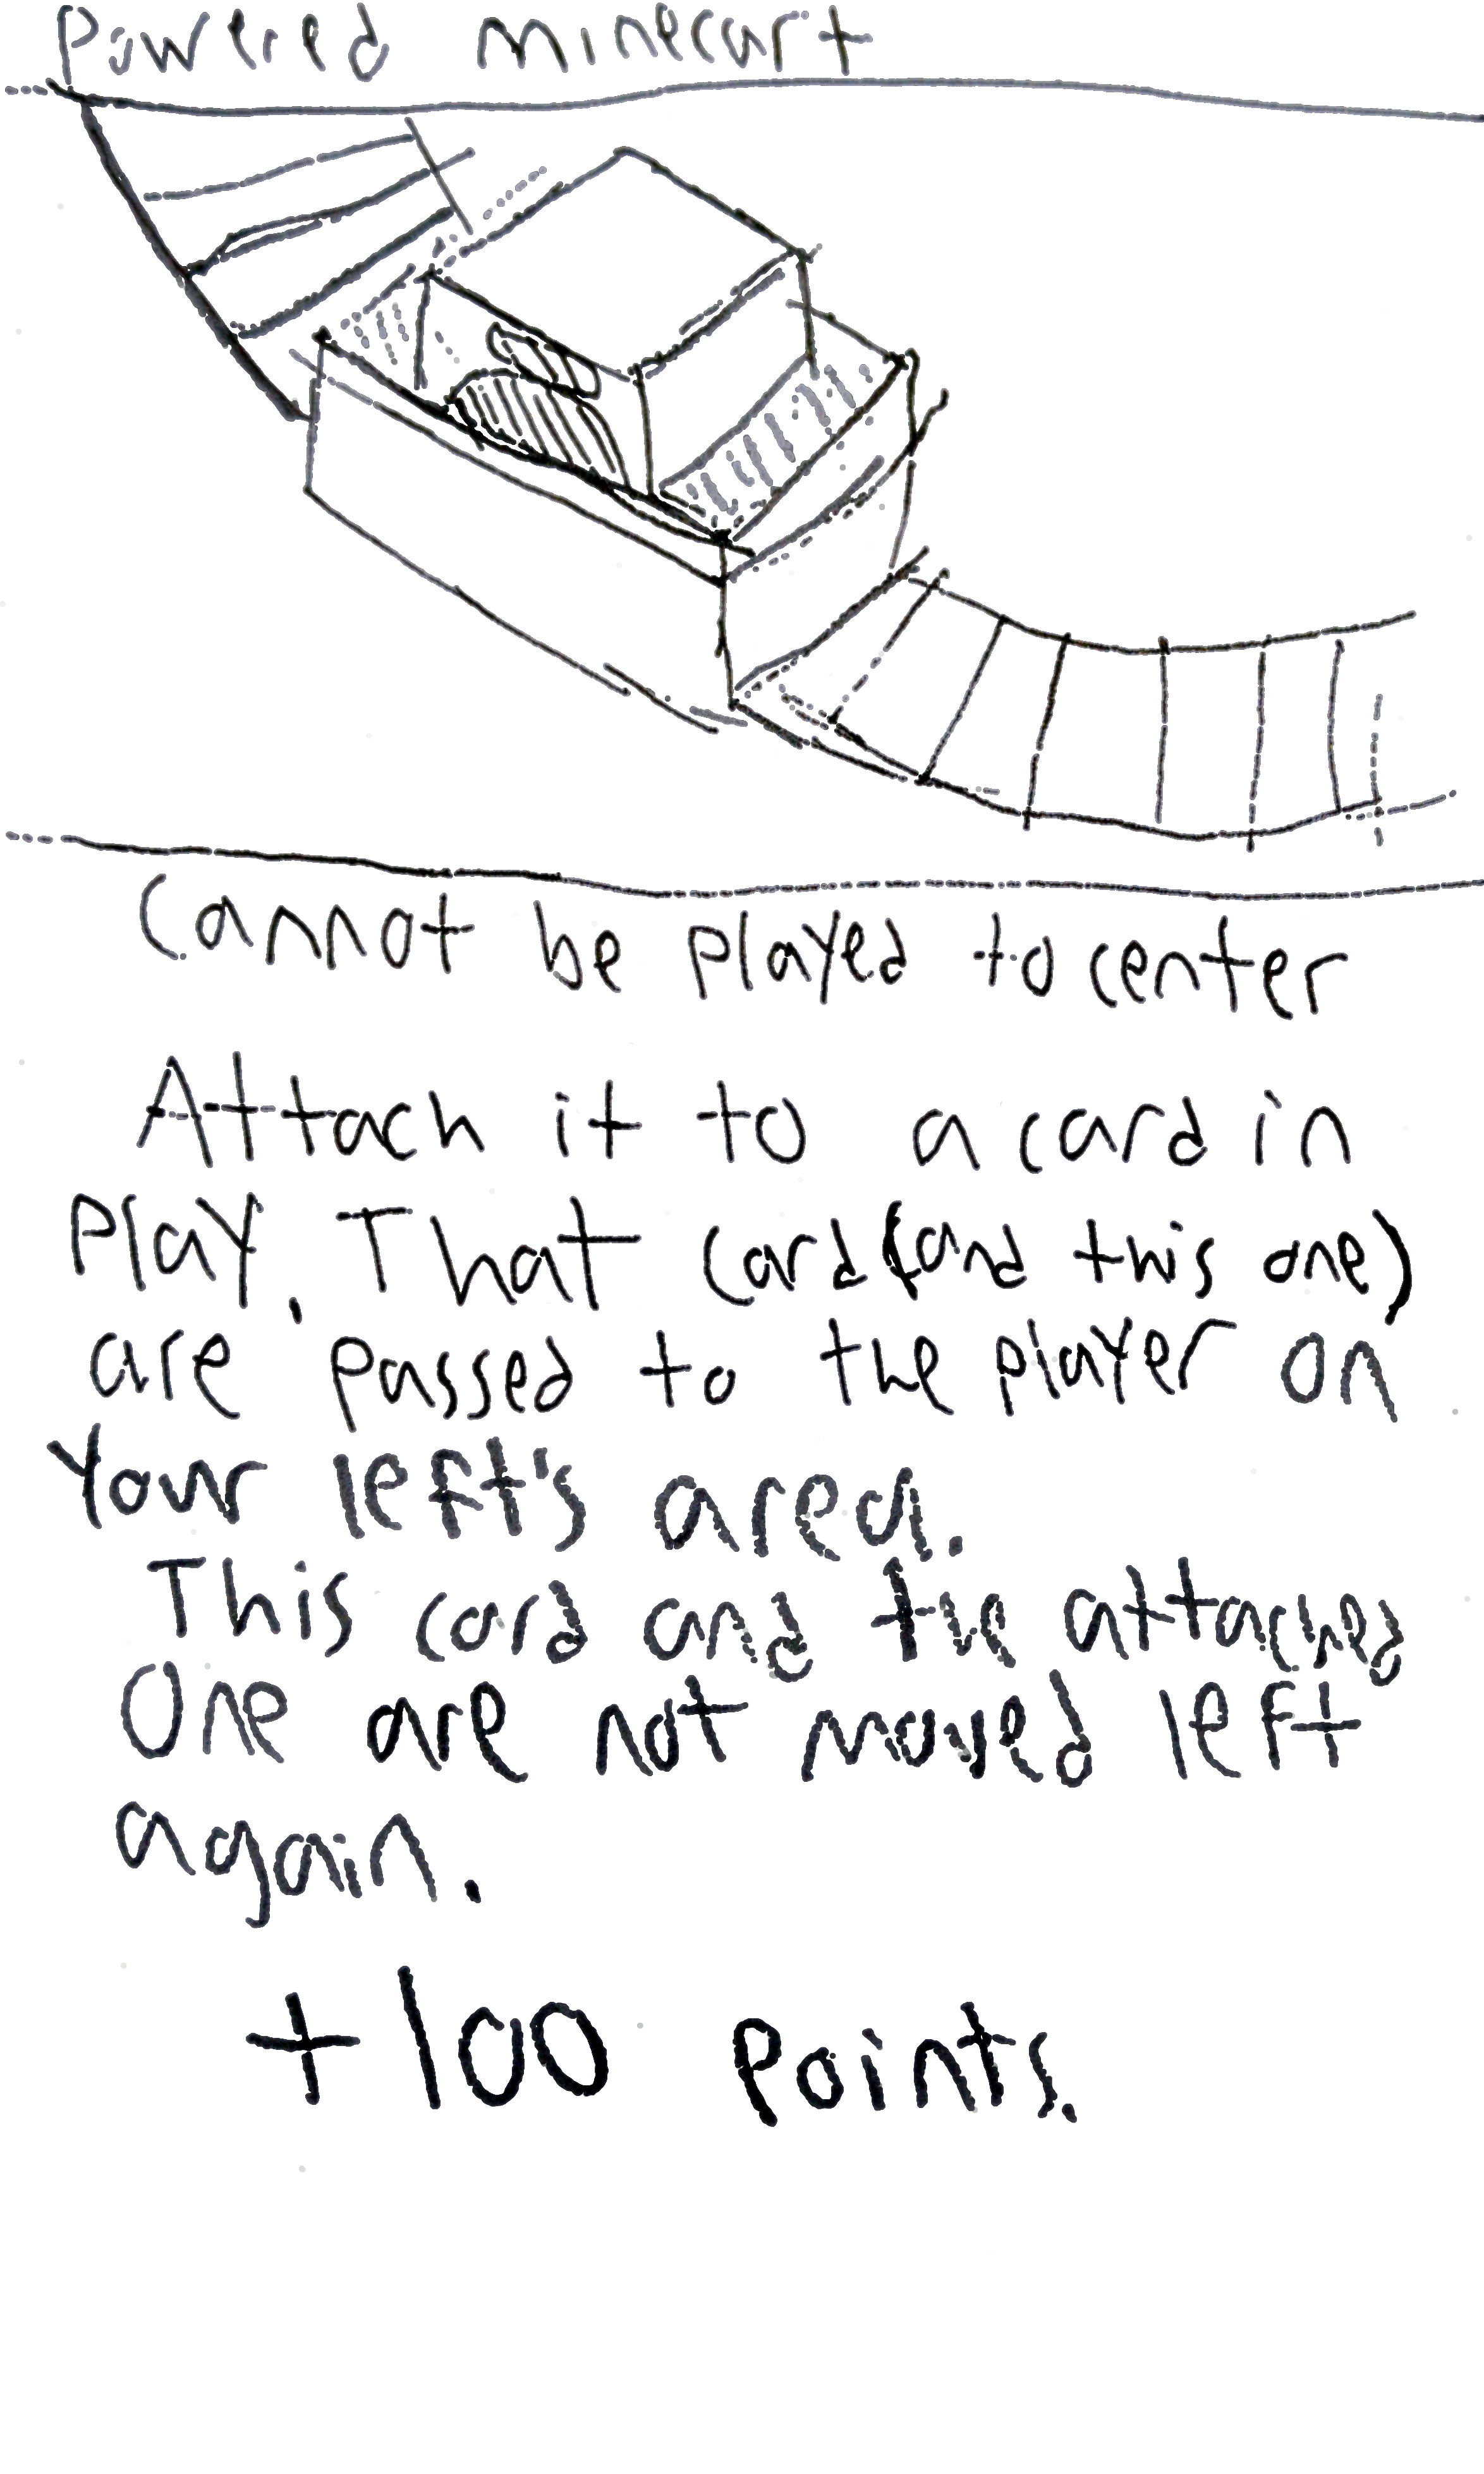 Powered minecart
Cannot be played to center
Attach it to a card in
Play. That card (and this one)
are passed to the player on
Your left's area.
This card and the attached
One are not moved left
again.
+100 Points.